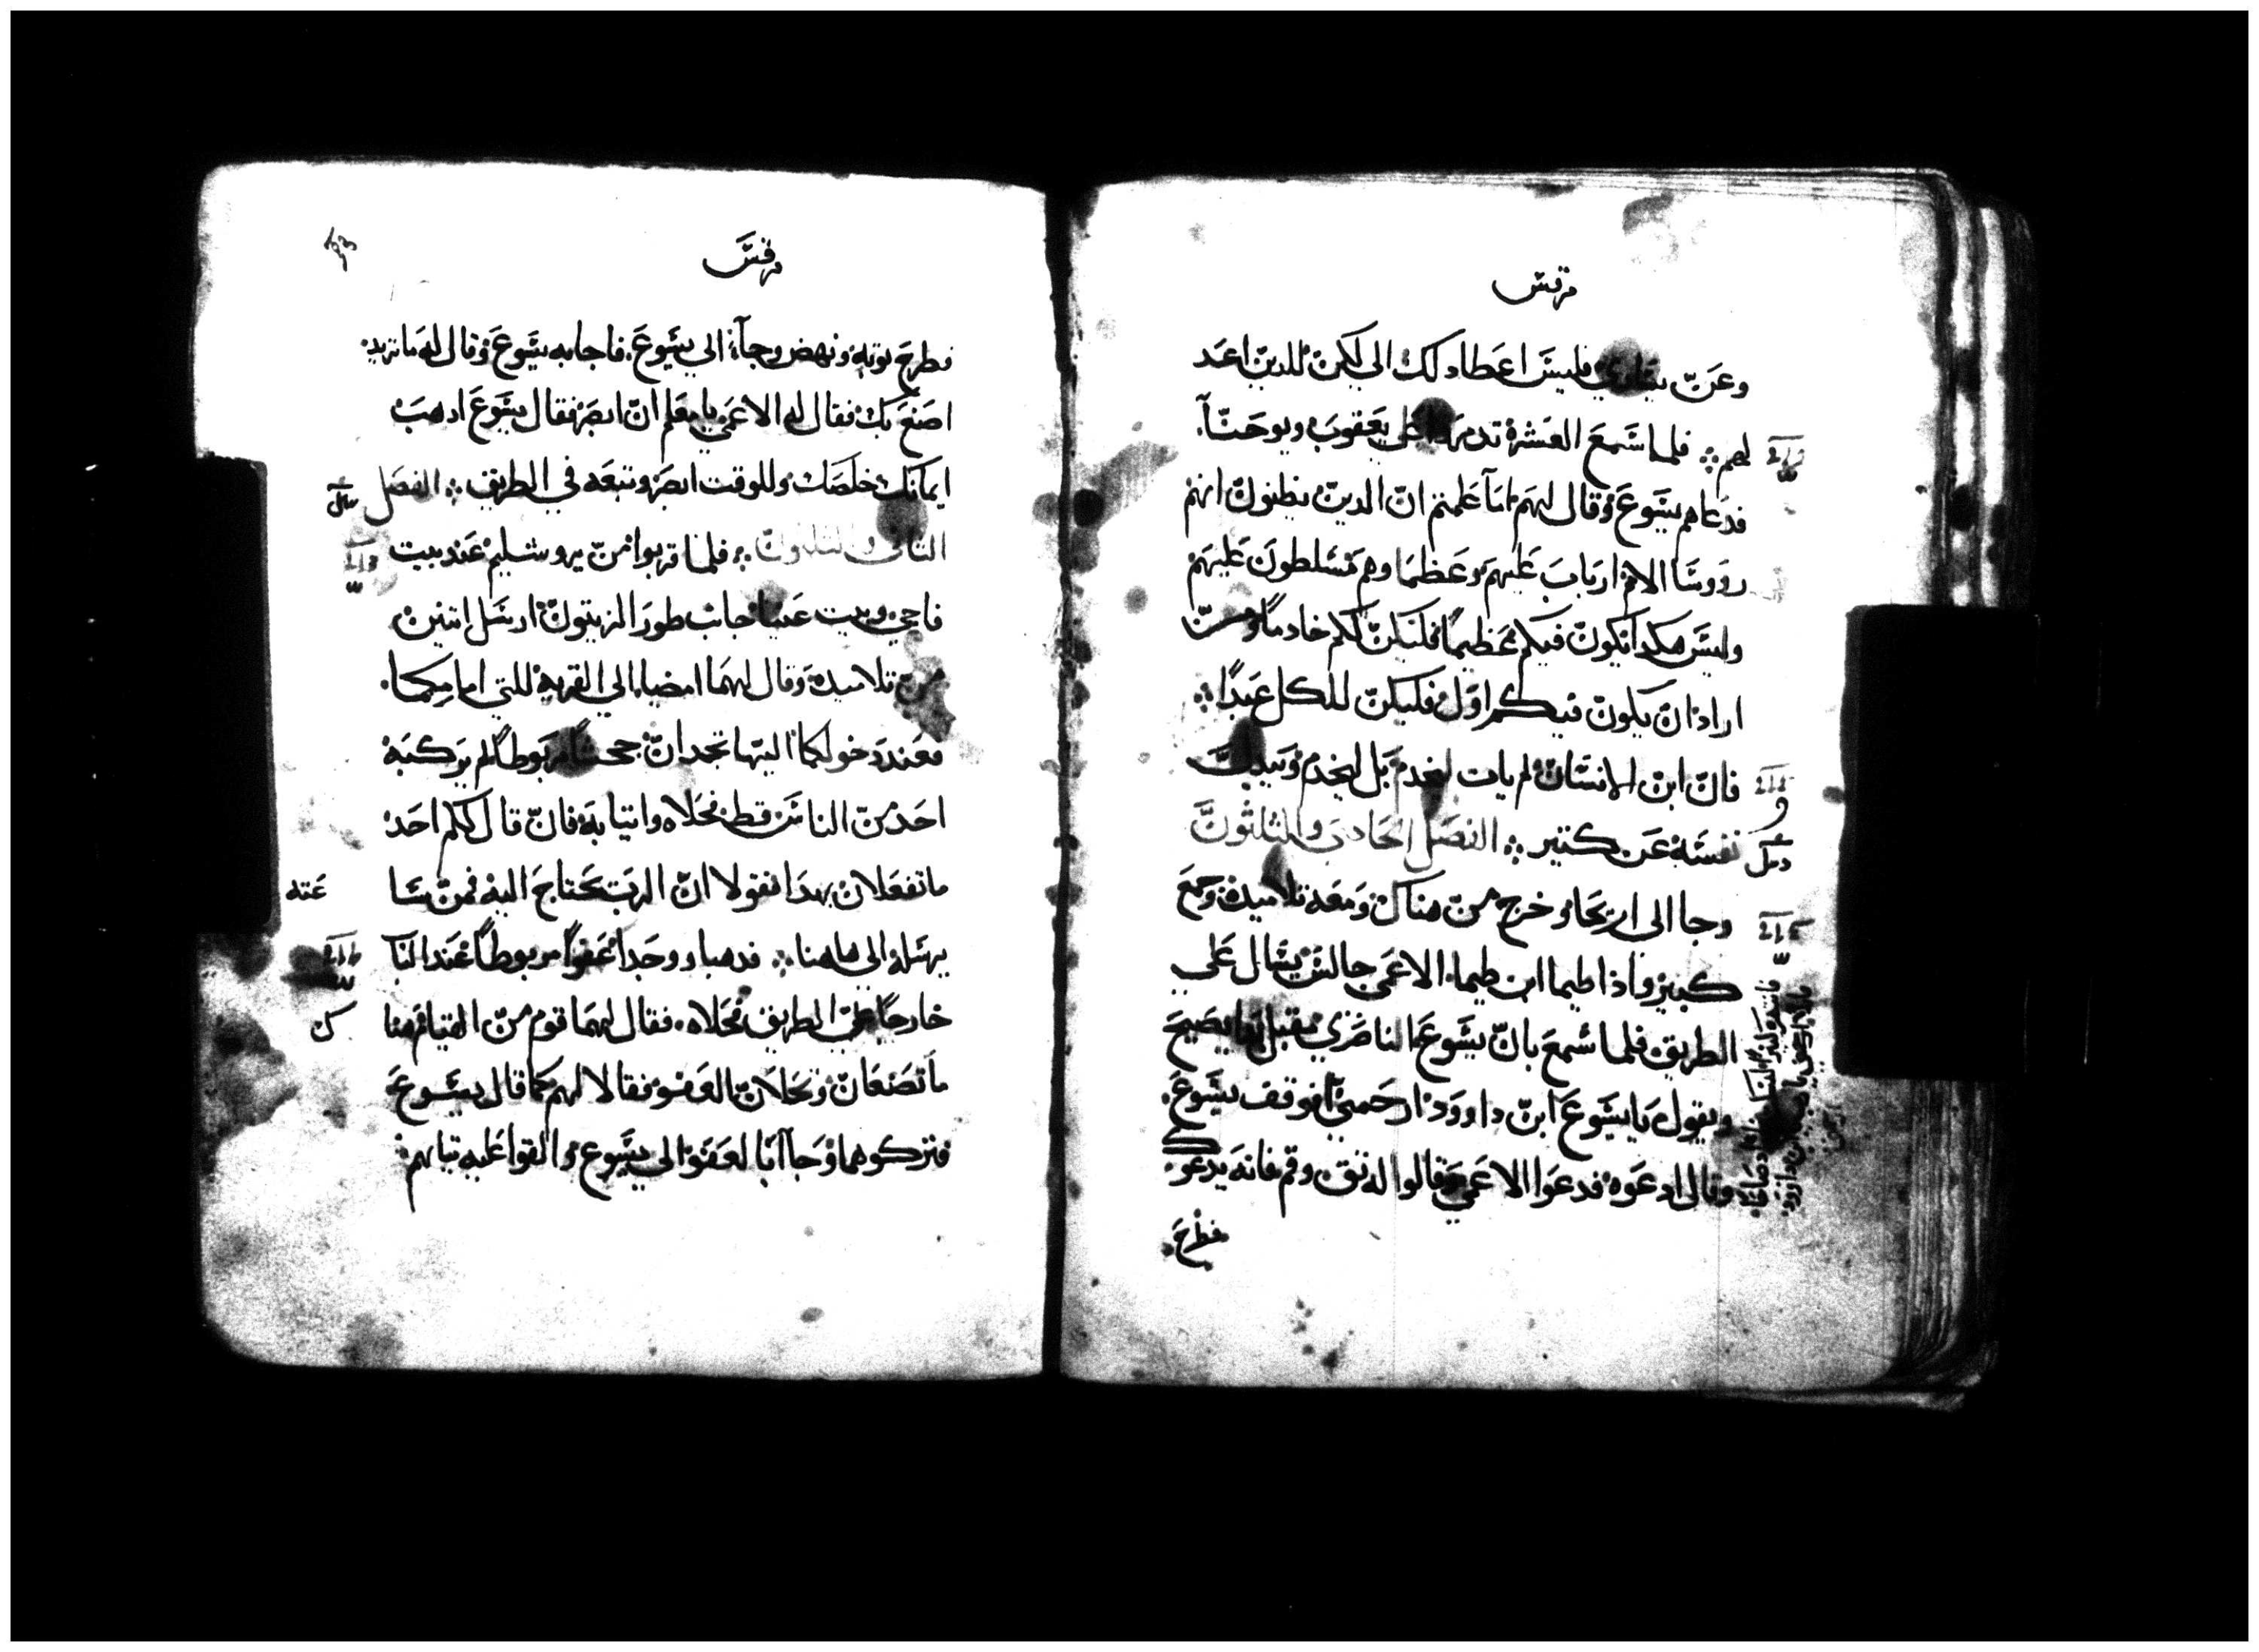 مرقس
وعن يساري فليس اعطا دلك الي لكن للدين اعد
لهم ፨ فلما سمع العشرة تدمروا علي يعقوب ويوحنا
فدعاهم يسوع وقال لهم اما علمتم ان الدين يظنون انهم
رووسا الامم ارباب عليهم وعظما وهم متسلطون عليهم
وليس هكدا يكون فيكم عظيما فليكن لكم خادما ومن
اراد ان يكون فيكم اول فليكن للكل عبدا ፨
فان ابن الانسان لم يات ليخدم بل ليخدم ويبدل
نفسه عن كتير ፨ الفصل الحادي والثلثون
وجا الي اريحا وخرج من هناك ومعه تلاميده وجمع
كبير واذا طيما ابن طيما الاعمي جالس يسال علي
الطريق فلما سمع بان يسوع الناصري يقبل بدا يصيح
ويقول يا يسوع ابن داوود ارحمني فوقف يسوع
وقال ادعوه فدعوا الاعمي وقالوا له تق وقم فانه يدعوك
فطرح
مرقس
فطرح توبه ونهض وجآ الي يسوع فاجابه يسوع وقال له ما تريد
اصنع بك فقال له الاعمي يا معلم ان ابصر فقال يسوع ادهب
ايمانك خلصك وللوقت ابصر وتبعه في الطريق ፨ الفصل
التاني والتلتون ፨ فلما قربوا من يروشليم عند بيت
فاجي وبيت عنيا جانب طور الزيتون ارسل اتنين
من تلاميده وقال لهما امضيا الي القرية اللتي امامكما
فعند دخولكما اليها تجدان جحشا مربوطا لم يركبه
احد من الناس قط فحلاه واتيا به فان قال لكم احد
ما تفعلان بهدا فقولا ان الرب يحتاج اليه فمن سا
عته
يرسله الي هاهنا ፨ فدهبا ووجدا عفوا مربوطا عند الباب
خارجا علي الطريق فحلاه فقال لهما قوم من القيام هنا
ما تصنعان وتحلان العفو فقالا لهم كما قال يسوع
فتركوهما وجاآ بالعفو الي يسوع والقوا عليه تيابهم